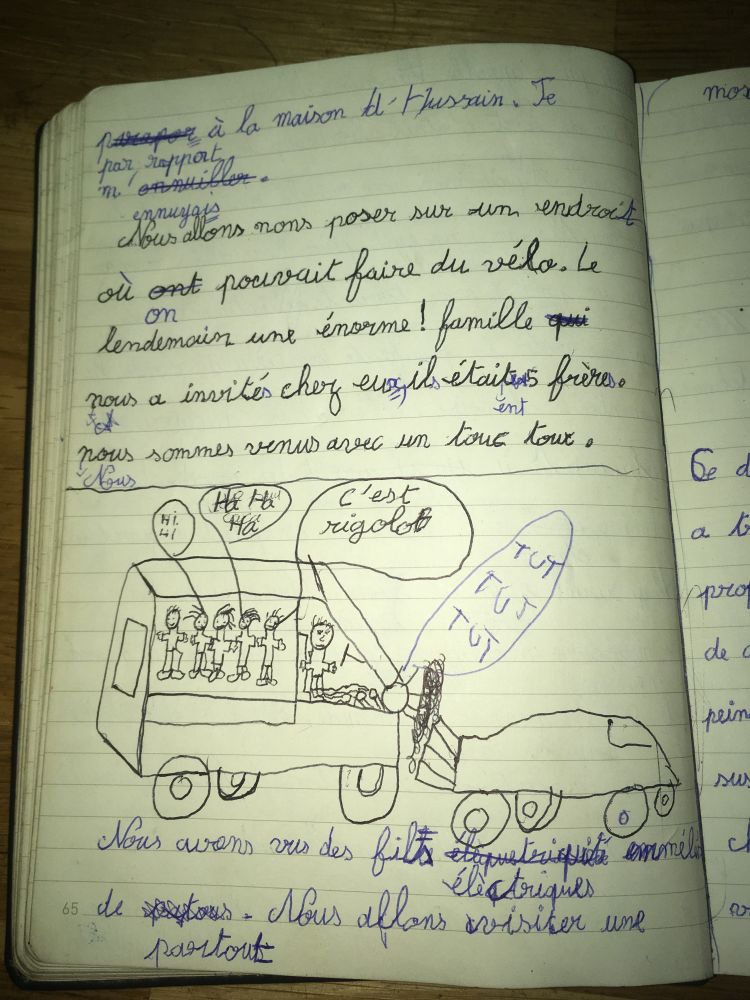 à la maison d'Hussain. Je
par rapport
m' onnuiller.
ennuyais
Nous allons nous poser sur un endroit
où ont pouvait faire du vélo. Le
on
lendemain une énorme! famille qui
nous a invités chez eux, ils était 5 frères.
ent
nous sommes venus avec un touc touc.
Nous
Hi
Hi
Ha Ha
Ha
C'est
rigolo
TUT
TUT
TUT
Nous avons vus des fils emmélé
électriques
65 de . Nous allons visiter une
partout
mos
Ce d
a t
prop
de
pein
sus